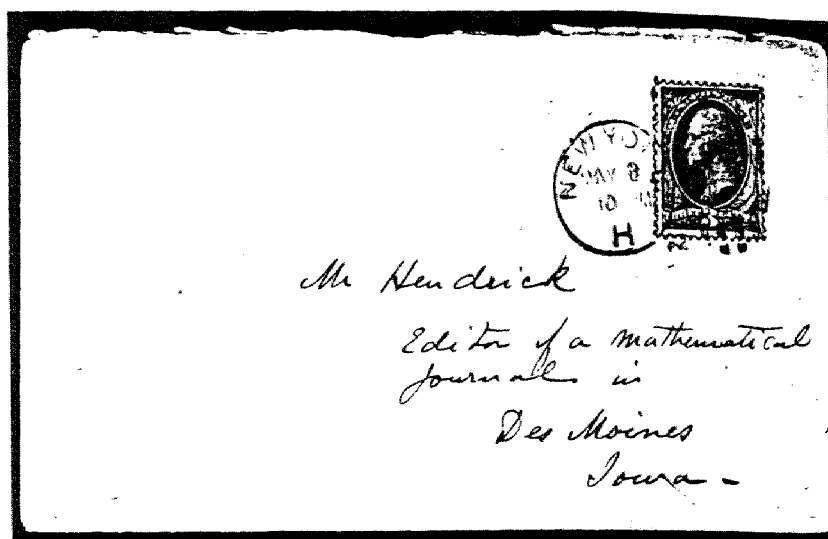 NEW YO
MAY 8
10
H
Mr Hendrick
Editor of a mathematical
journal in
Des Moines
Iowa -